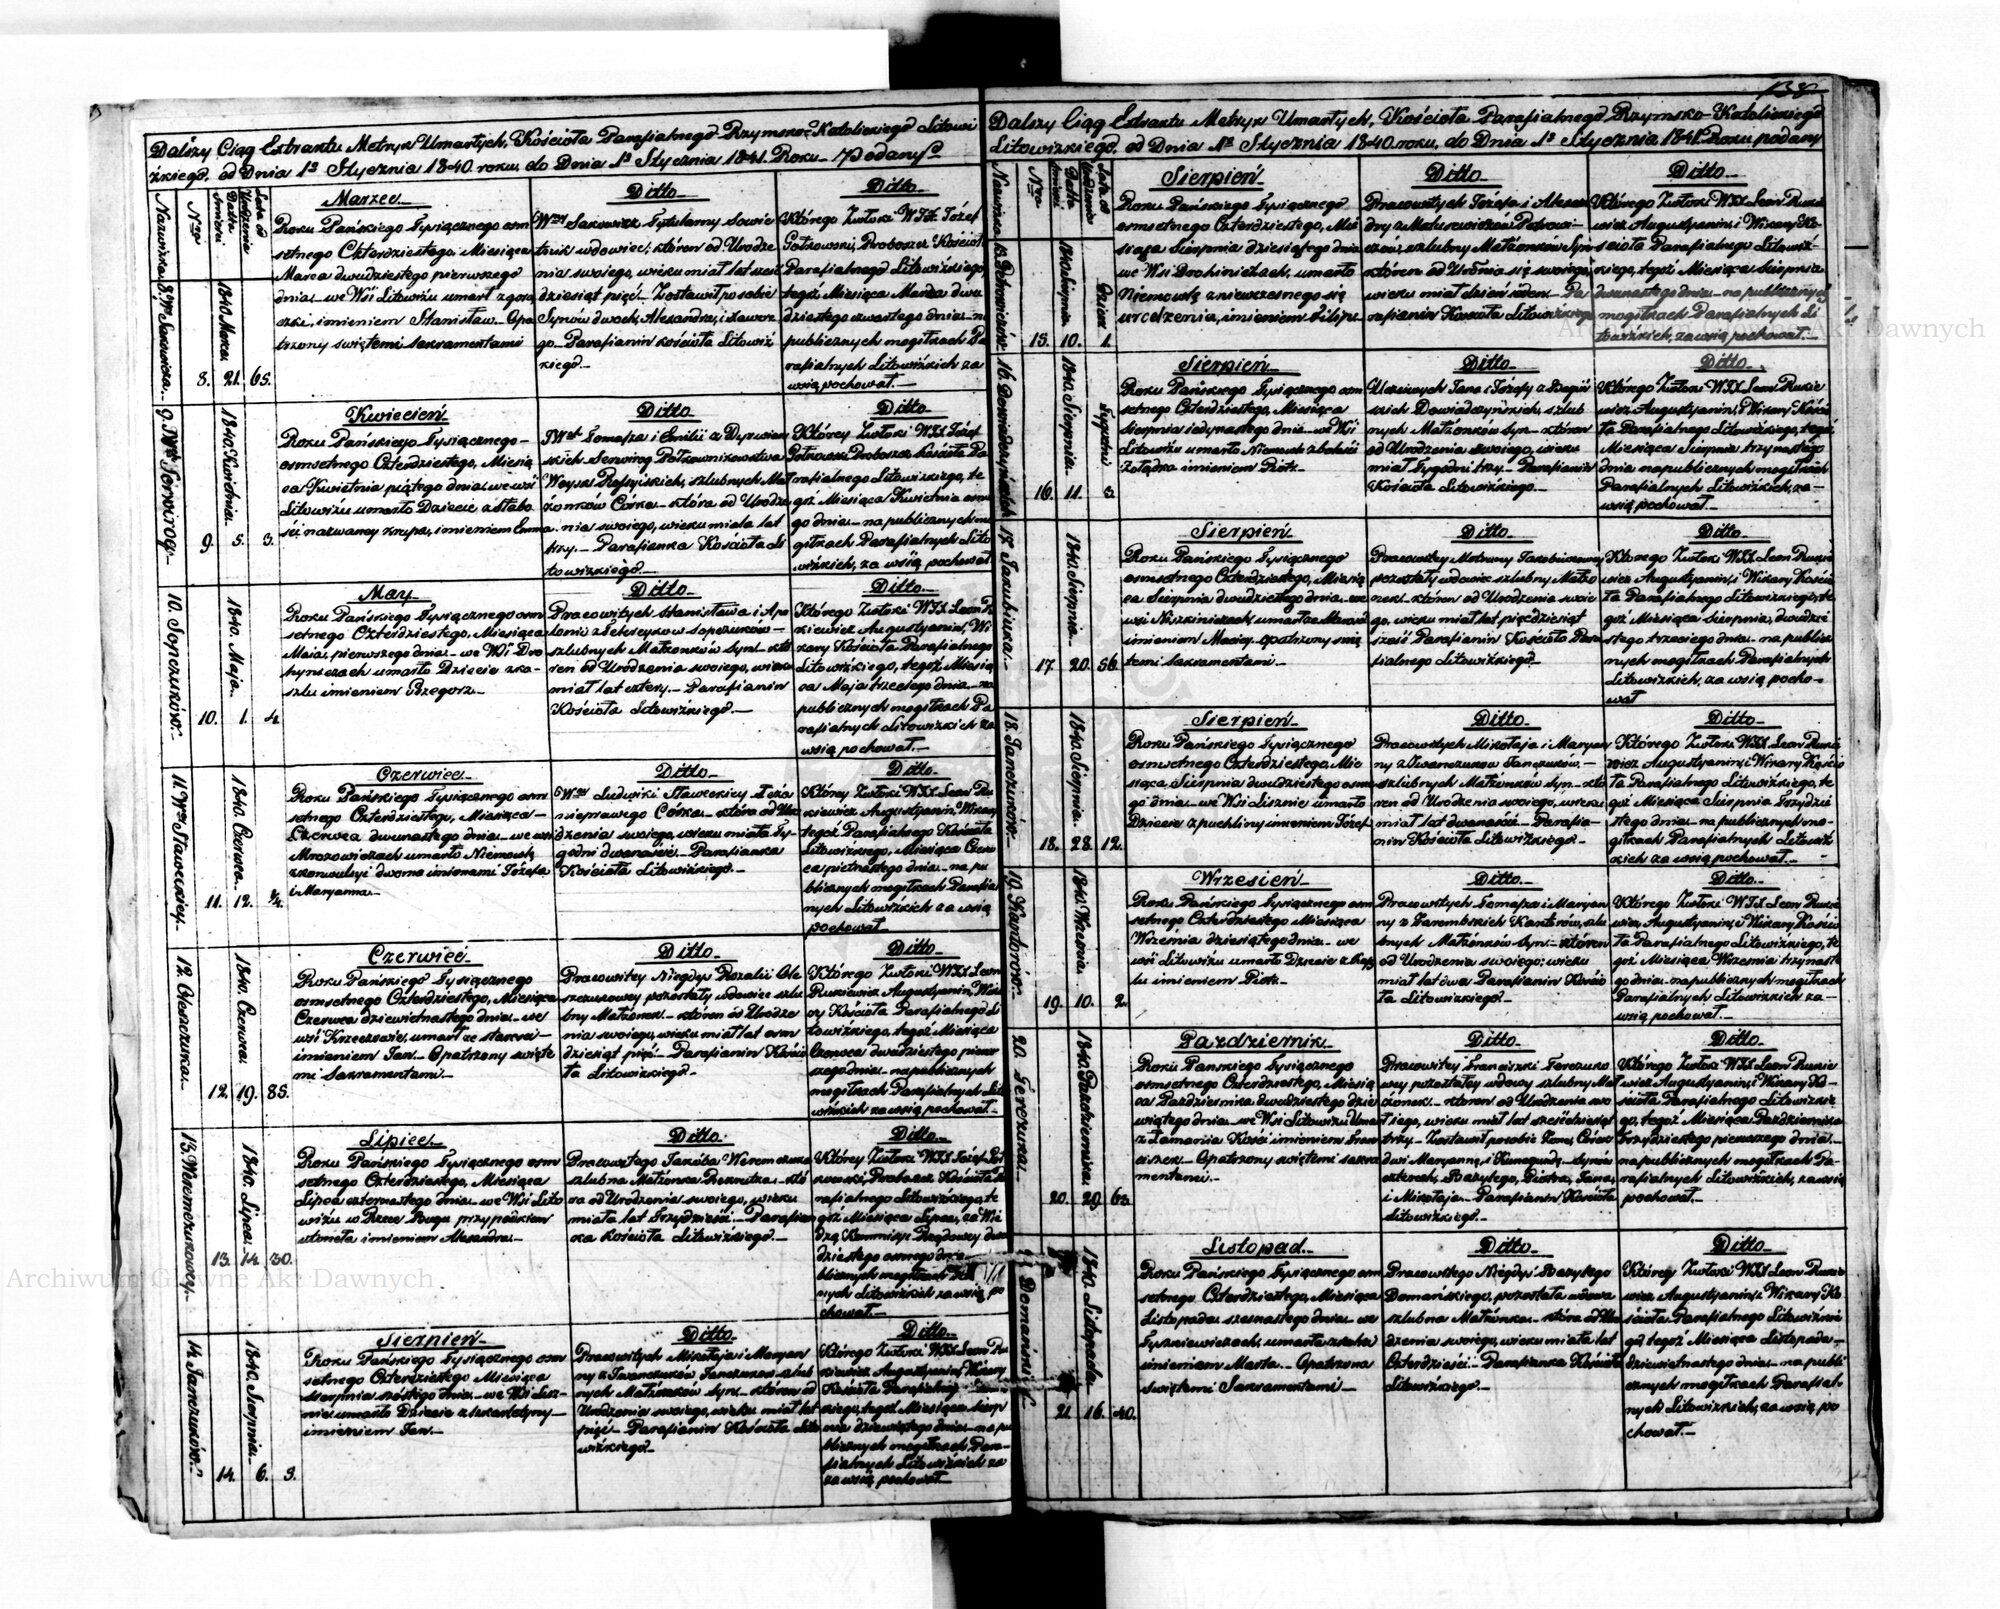 Dalszy Ciąg Extraktu Metryk Umarłych, Kościoła Parafialnego Rzymsko-Katolickiego Litowi
żkiego, od Dnia 1º Stycznia 1840 roku, do Dnia 1º Stycznia 1841 Roku podany
Nazwiska
Nra
Datta śmierci
Lata od Urodzenia
Marzec
Ditto
Ditto
8.
1840 Marca
8. 21. 65.
Roku Pańskiego Tysiącznego osm
setnego Czterdziestego, Miesiąca
Marca dwudziestego pierwszego
dnia we Wsi Litowiżu umarł
imieniem Stanisław. Opa
trzony świętemi Sakramentami
wdowiec, któren od Urodze
nia swoiego, wieku miał lat sześć
dziesiąt pięć. Zostawił po sobie
Synów dwoch, Alexandra, i
Parafianin Kościoła Litowiż
kiego.
Którego Zwłoki WJX Józef
Piotrowski, Proboszcz Kościoła
Parafialnego Litowiżkiego,
tegoż Miesiąca Marca dwu
dziestego czwartego dnia na
publicznych mogiłkach Pa
rafialnych Litowiżkich za
wsią pochował.
Kwiecień
Ditto
Ditto
1840 Kwietnia
9. 5. 3.
Roku Pańskiego Tysiącznego
osmsetnego Czterdziestego, Miesią
ca Kwietnia piątego dnia, we wsi
Litowiżu umarło Dziecie z słabo
ści nazwaney krupa, imieniem Emma
Tomasza i Emilii z
Woysk Rossyiskich, szlubnych Mał
żonków Córka która od Urodze
nia swoiego, wieku miała lat
trzy. Parafianka Kościoła Li
towiżkiego
Którey Zwłoki WJX Józef
Piotrowski Proboszcz Kościoła Pa
rafialnego Litowiżkiego, te
goż Miesiąca Kwietnia osme
go dnia na publicznych mo
giłkach Parafialnych Lito
wiżkich, za wsią pochował
May
Ditto
Ditto
10. Sopczuków.
1840. Maja.
10. 1. 4.
Roku Pańskiego Tysiącznego osm
setnego Czterdziestego, Miesiąca
Maia, pierwszego dnia we Wsi Dro
hyniczach umarło Dziecie z ka
szlu imieniem Grzegorz.
Pracowitych Stanisława i Apo
lonii z Sopczuków
szlubnych Małżonków Syn któ
ren od Urodzenia swoiego, wieku
miał lat cztery. Parafianin
Kościoła Litowiżkiego.
Którego Zwłoki WJX Leon Ru
kiewicz Augustyanin, Wi
kary Kościoła Parafialnego
Litowiżkiego, tegoż Miesią
ca Maja trzeciego dnia na
publicznych mogiłkach Pa
rafialnych Litowiżkich za
wsią pochował.
Czerwiec
Ditto
Ditto
1840. Czerwca.
11. 12. ¼.
Roku Pańskiego Tysiącznego osm
setnego Czterdziestego, Miesiąca
Czerwca dwunastego dnia we wsi
Mrozowiczach umarło Niemowlę
z konwulsyi dwoma imionami Józefa
i Maryanna
Ludwiki Staweckiey z łoża
nieprawego Córka która od Uro
dzenia swoiego, wieku miała Ty
godni dwanaście. Parafianka
Kościoła Litowiżkiego.
Którey Zwłoki WJX Leon Ru
kiewicz Augustyanin, Wikary
tegoż Parafialnego Kościoła
Litowiżkiego, Miesiąca Czerw
ca piętnastego dnia na pu
blicznych mogiłkach Parafial
nych Litowiżkich za wsią
pochował.
Czerwiec
Ditto
Ditto
1840. Czerwca.
12. 19. 85.
Roku Pańskiego Tysiącznego
osmsetnego Czterdziestego, Miesiąca
Czerwca dziewiętnastego dnia we
wsi Krzeczowie, umarł ze starości
imieniem Jan. Opatrzony święte
mi Sakramentami.
Pracowitey Niegdyś Rozalii Ole
szczukowey pozostały wdowiec szlu
bny Małżonek któren od Urodze
nia swoiego, wieku miał lat osm
dziesiąt pięć. Parafianin Kościo
ła Litowiżkiego.
Którego Zwłoki WJX Leon
Rukiewicz Augustyanin, Wika
ry Kościoła Parafialnego Li
towiżkiego, tegoż Miesiąca
Czerwca dwudziestego pierw
szego dnia na publicznych
mogiłkach Parafialnych Lito
wiżkich za wsią pochował.
Lipiec
Ditto
Ditto
13. Weremczukowey.
1840. Lipca.
13. 14. 30.
Roku Pańskiego Tysiącznego osm
setnego Czterdziestego, Miesiąca
Lipca czternastego dnia we Wsi Lito
wiżu w Rzece Bugu przypadkiem
utonęła imieniem Alexandra.
Pracowitego Jakóba Weremczuka
szlubna Małżonka któ
ra od Urodzenia swoiego, wieku
miała lat Trzydzieści. Parafian
ka Kościoła Litowiżkiego.
Którey Zwłoki WJX Józef Pio
trowski, Proboszcz Kościoła Pa
rafialnego Litowiżkiego, te
goż Miesiąca Lipca, za Wie
dzą Kommisyi Rządowey dwu
dziestego osmego dnia
blicznych mogiłkach
nych Litowiżkich za wsią po
chował.
Sierpień
Ditto
Ditto
14. Janczuków.
1840. Sierpnia.
14. 6. 3.
Roku Pańskiego Tysiącznego osm
setnego Czterdziestego Miesiąca
Sierpnia szóstego dnia we Wsi Lisz
nie umarło Dziecie z szkarletyny
imieniem Jan.
Pracowitych Mikołaja i Maryan
ny z Iwanczuków Janczuków szlub
nych Małżonków Syn. któren od
Urodzenia swoiego, wieku miał lat
pięć. Parafianin Kościoła Lito
wiżkiego
Którego Zwłoki WJX Leon Ru
kiewicz Augustyanin, Wikary
Kościoła Parafialnego Litowiż
kiego, tegoż Miesiąca Sierp
nia dziewiątego dnia na pu
blicznych mogiłkach Para
fialnych Litowiżkich za
wsią pochował.
Dalszy Ciąg Extraktu Metryk Umarłych, Kościoła Parafialnego Rzymsko-Katolickiego
Litowiżkiego, od Dnia 1º Stycznia 1840 roku, do Dnia 1º Stycznia 1841º Roku podany
Nazwiska
Nra
Datta śmierci
Lata od Urodzenia
Sierpień
Ditto
Ditto
15. 10. 1.
Dzień
Roku Pańskiego Tysiącznego
osmsetnego Czterdziestego, Mie
siąca Sierpnia dziesiątego dnia
we Wsi Drohiniczach, umarło
Niemowlę z niewczesnego się
urodzenia, imieniem Filip.
Pracowitych Józefa i Alexan
dry z Matusewiczów
szlubny Małżonków Syn
któren od Urodzenia się swoiego,
wieku miał dzień ieden. Pa
rafianin Kościoła Litowiżkiego
Którego Zwłoki WJX Leon Ruki
wicz Augustyanin, i Wikary Ko
ścioła Parafialnego Litowiż
kiego, tegoż Miesiąca Sierpnia
dwunastego dnia na publicznych
mogiłkach Parafialnych Li
towiżkich, za wsią pochował.
Sierpień
Ditto
Ditto
1840. Sierpnia.
16. 11. 3.
Tygodni
Roku Pańskiego Tysiącznego osm
setnego Czterdziestego, Miesiąca
Sierpnia iedynastego dnia we Wsi
Litowiżu umarło Niemowlę z boleści
żołądka imieniem Piotr.
Uczciwych Jana i Józefy z
skich szlub
nych Małżonków Syn któren
od Urodzenia swoiego, wieku
miał Tygodni trzy. Parafianin
Kościoła Litowiżkiego.
Którego Zwłoki WJX Leon Rukie
wicz Augustyanin, i Wikary Kościo
ła Parafialnego Litowiżkiego, tegoż
Miesiąca Sierpnia trzynastego
dnia na publicznych mogiłkach
Parafialnych Litowiżkich, za
wsią pochował.
Sierpień
Ditto
Ditto
17. Jakubiuka.
1840. Sierpnia.
17. 20. 56.
Roku Pańskiego Tysiącznego
osmsetnego Czterdziestego, Miesią
ca Sierpnia dwudziestego dnia, we
wsi umarł z
imieniem Maciey. Opatrzony świę
temi Sakramentami.
Pracowitey Matrony Jakubiukowey
pozostały wdowiec szlubny Małżo
nek. któren od Urodzenia swoie
go, wieku miał lat pięćdziesiąt
sześć Parafianin Kościoła Para
fialnego Litowiżkiego.
Którego Zwłoki WJX Leon Rukie
wicz Augustyanin, i Wikary Kościo
ła Parafialnego Litowiżkiego, te
goż Miesiąca Sierpnia, dwudzie
stego trzeciego dnia na publicz
nych mogiłkach Parafialnych
Litowiżkich, za wsią pocho
wał
Sierpień
Ditto
Ditto
18. Janczuków.
1840. Sierpnia.
18. 28. 12.
Roku Pańskiego Tysiącznego
osmsetnego Czterdziestego, Mie
siąca, Sierpnia dwudziestego osme
go dnia we Wsi Lisznie umarło
Dziecie z puchliny imieniem Józef
Pracowitych Mikołaja i Maryan
ny z Iwanczuków Janczuków.
szlubnych Małżonków Syn któ
ren od Urodzenia swoiego, wieku
miał lat dwanaście. Parafia
nin Kościoła Litowiżkiego.
Którego Zwłoki WJX Leon Rukie
wicz Augustyanin, i Wikary Kościo
ła Parafialnego Litowiżkiego, te
goż Miesiąca Sierpnia Trzydzie
stego dnia na publicznych mo
giłkach Parafialnych Litowiż
kich za wsią pochował.
Wrzesień
Ditto
Ditto
19. Kantorów.
1840. Września.
19. 10. 2.
Roku Pańskiego Tysiącznego osm
setnego Czterdziestego Miesiąca
Września dziesiątego dnia we
wsi Litowiżu umarło Dziecie z kasz
lu imieniem Piotr.
Pracowitych Tomasza i Maryan
ny z Zarembskich Kantorów, szlu
bnych Małżonków Syn. któren
od Urodzenia swoiego, wieku
miał lat dwa Parafianin Kościo
ła Litowiżkiego.
Którego Zwłoki WJX Leon Rukie
wicz Augustyanin, i Wikary Kościo
ła Parafialnego Litowiżkiego, te
goż Miesiąca Września trzynaste
go dnia na publicznych mogiłkach
Parafialnych Litowiżkich za
wsią pochował.
Pazdziernik
Ditto
Ditto
20. Fereżuka.
1840. Pazdziernika.
20. 29. 63.
Roku Pańskiego Tysiącznego
osmsetnego Czterdziestego, Miesią
ca Pazdziernika dwudziestego dzie
wiątego dnia we Wsi Litowiżu Umarł
z Łamania Kości imieniem Fran
ciszek. Opatrzony świętemi Sakra
mentami.
Pracowitey Franciszki
wey pozostały wdowy szlubny Mał
żonek. któren od Urodzenia swo
iego, wieku miał lat sześćdziesiąt
trzy. Zostawił po sobie
Maryannę, i Kunegundę, synów
czterech, Bazylego, Piotra, Jana,
i Mikołaja. Parafianin Kościoła
Litowiżkiego.
Którego Zwłoki WJX Leon Rukie
wicz Augustyanin, i Wikary Ko
ścioła Parafialnego Litowiżkie
go, tegoż Miesiąca Pazdziernika
Trzydziestego pierwszego dnia.
na publicznych mogiłkach Pa
rafialnych Litowiżkich, za wsią
pochował.
Listopad
Ditto
Ditto
1840 Listopada
21 16. 40.
Roku Pańskiego Tysiącznego osm
setnego Czterdziestego, Miesiąca
Listopada szesnastego dnia we
umarła z
imieniem Marta. Opatrzona
świętemi Sakramentami
Pracowitego Niegdyś Bazylego
Domańskiego, pozostała wdowa
szlubna Małżonka. która od Uro
dzenia swoiego, wieku miała lat
Czterdzieści. Parafianka Kościoła
Litowiżkiego.
Którey Zwłoki WJX Leon Rukie
wicz Augustyanin, i Wikary Ko
ścioła Parafialnego Litowiżkie
go tegoż Miesiąca Listopada
dziewiętnastego dnia na publi
cznych mogiłkach Parafial
nych Litowiżkich, za wsią po
chował.
Archiwum Główne Akt Dawnych
Archiwum Główne Akt Dawnych